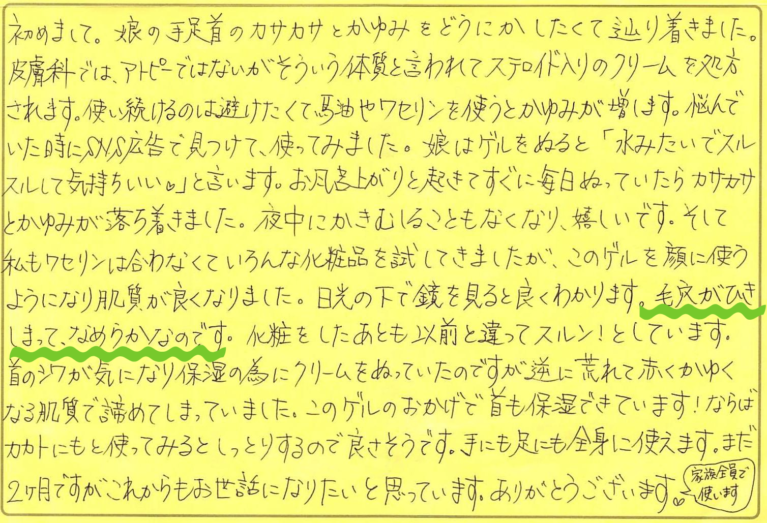 初めまして。娘の手足首のカサカサとかゆみをどうにかしたくて辿り着きました。
皮膚科では、アトピーではないがそういう体質と言われてステロイド入りのクリームを処方
されます。使い続けるのは避けたくて馬油やワセリンを使うとかゆみが増します。悩んで
いた時にSNS広告で見つけて、使ってみました。娘はゲルをぬると「水みたいでスル
スルして気持ちいい♥」と言います。お風呂上がりと起きてすぐに毎日ぬっていたらカサカサ
とかゆみが落ち着きました。夜中にかきむしることもなくなり、嬉しいです。そして
私もワセリンは合わなくていろんな化粧品を試してきましたが、このゲルを顔に使う
ようになり肌質が良くなりました。日光の下で鏡を見ると良くわかります。毛穴がひき
しまって、なめらかなのです。化粧をしたあとも以前と違ってスルン!としています。
首のシワが気になり保湿の為にクリームをぬっていたのですが逆に荒れて赤くかゆく
なる肌質で諦めてしまっていました。このゲルのおかげで首も保湿できています!ならば
カカトにもと使ってみるとしっとりするので良さそうです。手にも足にも全身に使えます。まだ
2ヶ月ですがこれからもお世話になりたいと思っています。ありがとうございます。♥
家族全員で
使います